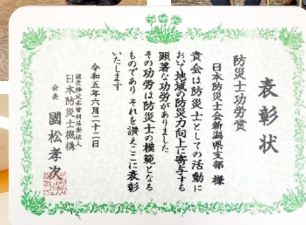 表彰状
防災士功労賞
日本防災士会新潟県支部 様
貴会は防災士としての活動に
おいて地域の防災力向上に寄与する
顕著な功労がありました
その功労は防災士の模範となる
ものであり それを讃えここに表彰
いたします
令和五年六月二十二日
認定特定非営利活動法人
日本防災士機構
会長 國松孝次